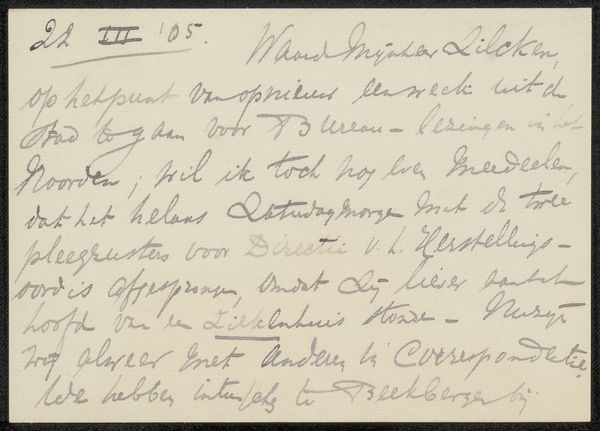 22 III '05.
Waarde Mijnheer Zilcken,
op het punt van opnieuw een week uit de
stad te gaan voor Bureau-lezingen in het
Noorden; wil ik toch nog even meedeelen,
dat het helaas Zaturdagmorgen met de twee
pleegzusters voor Directie v. h. Herstellings-
oord is afgesprongen, omdat zij liever aan het
hoofd van een Ziekenhuis stonden - Nu zijn
wij alweer met anderen in Correspondentie.
We hebben te Beekbergen bij